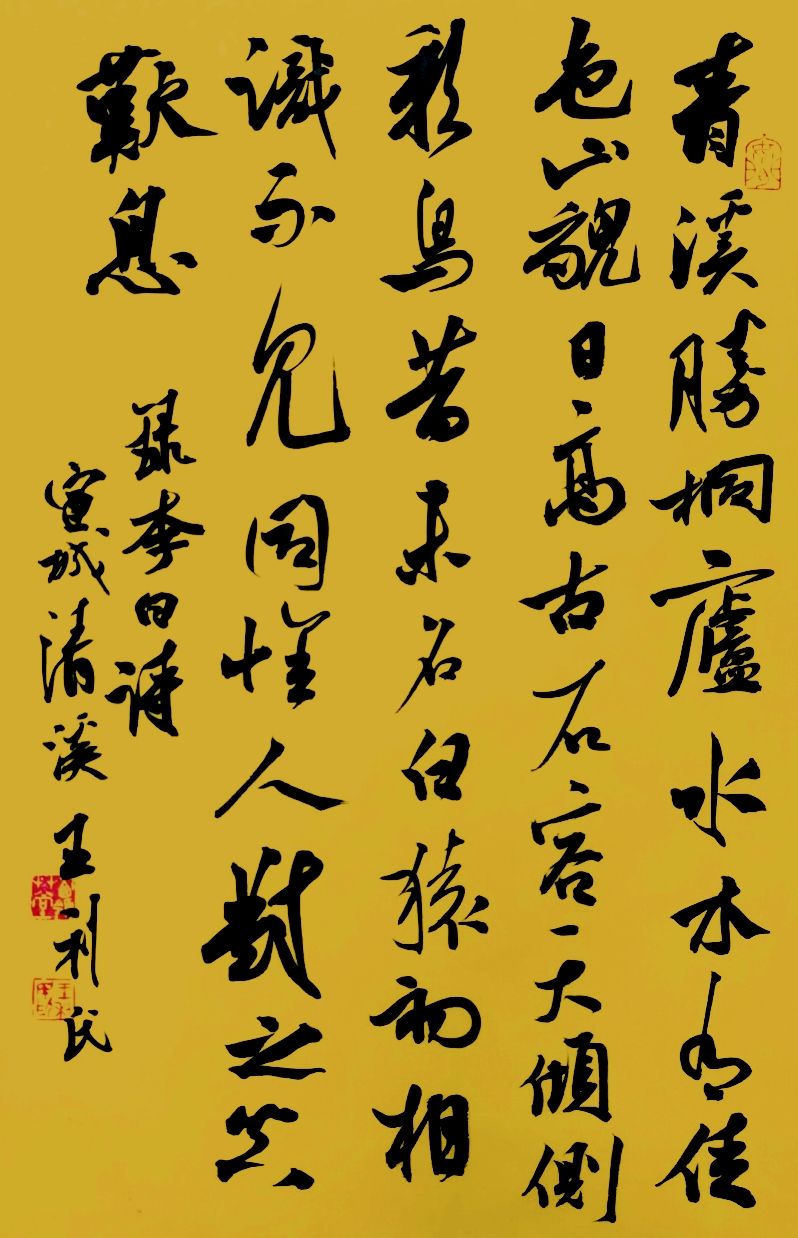 青溪勝桐廬水木有佳
色山貌日高古石容天傾側
彩鳥昔未名白猿初相
識不見同懷人對之空
歎息
録李白詩
宣城清溪王利民